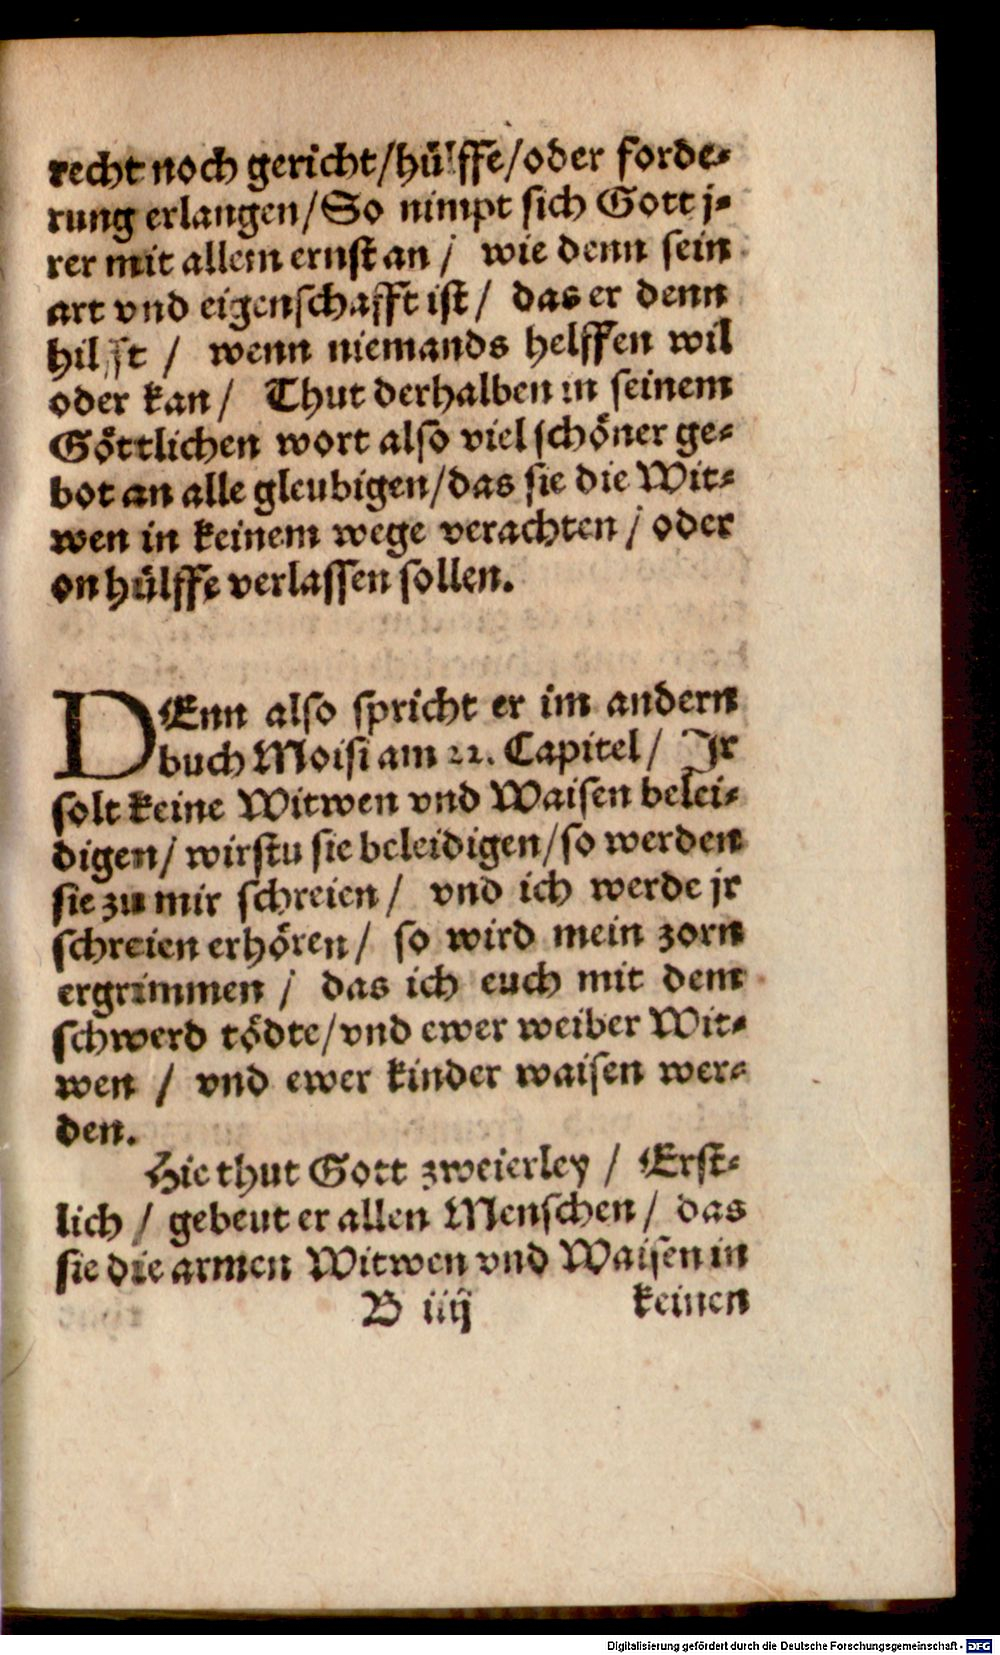 recht noch gericht/hülffe/oder forde⸗
rung erlangen/So nimpt sich Gott j⸗
rer mit allem ernst an / wie denn sein
art vnd eigenschafft ist / das er denn
hilfft / wenn niemands helffen wil
oder kan / Thut derhalben in seinem
Göttlichen wort also viel schöner ge⸗
bot an alle gleubigen/das sie die Wit⸗
wen in keinem wege verachten / oder
on hülffe verlassen sollen.
DEnn also spricht er im andern
buch Moisi am 22. Capitel / Jr
solt keine Witwen vnd Waisen belei⸗
digen / wirstu sie beleidigen/so werden
sie zu mir schreien / vnd ich werde jr
schreien erhören / so wird mein zorn
ergrimmen / das ich euch mit dem
schwerd tödte/vnd ewer weiber Wit⸗
wen / vnd ewer kinder waisen wer⸗
den.
Hie thut Gott zweierley / Erst⸗
lich / gebeut er allen Menschen / das
sie die armen Witwen vnd Waisen in
B iiij keinen
Digitalisierung gefördert durch die Deutsche Forschungsgemeinschaft - DFG